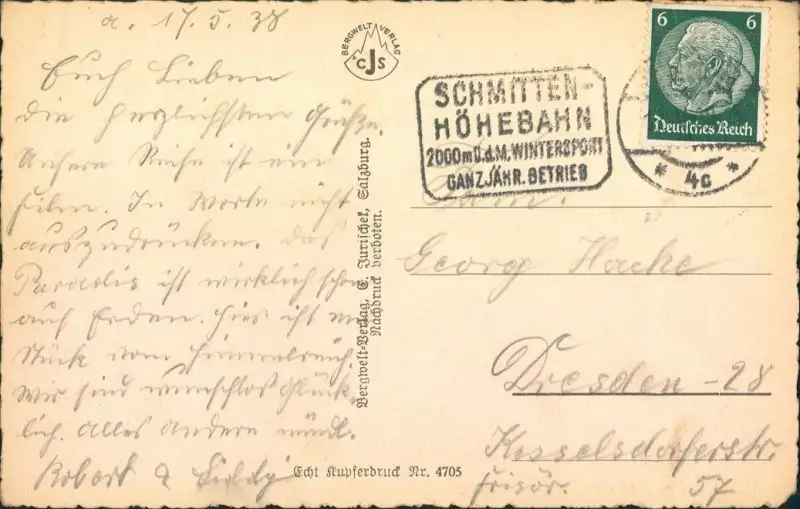 a. 17.5.38
Euch Lieben
die herzlichsten Grüße.
Unsere Reise ist ein
Film. In Worte nicht
auszudrücken. Das
Paradis ist wirklich schon
auf Erden. Hier ist ein
Stück vom Himmelreich.
Wir sind wunschlos glück-
lich. Alles andere mündl.
Robert &
BERGWELT VERLAG
CJS
Bergwelt-Verlag, C. Jurischek, Salzburg.
Nachdruck verboten.
Echt Kupferdruck Nr. 4705
SCHMITTEN-
HÖHEBAHN
2000 m Ü.d.M. WINTERSPORT
GANZJÄHR. BETRIEB
6 6
Deutsches Reich
* 4c *
Georg Hacke
Dresden - 28
Kesselsdorferstr.
Frisör. 57